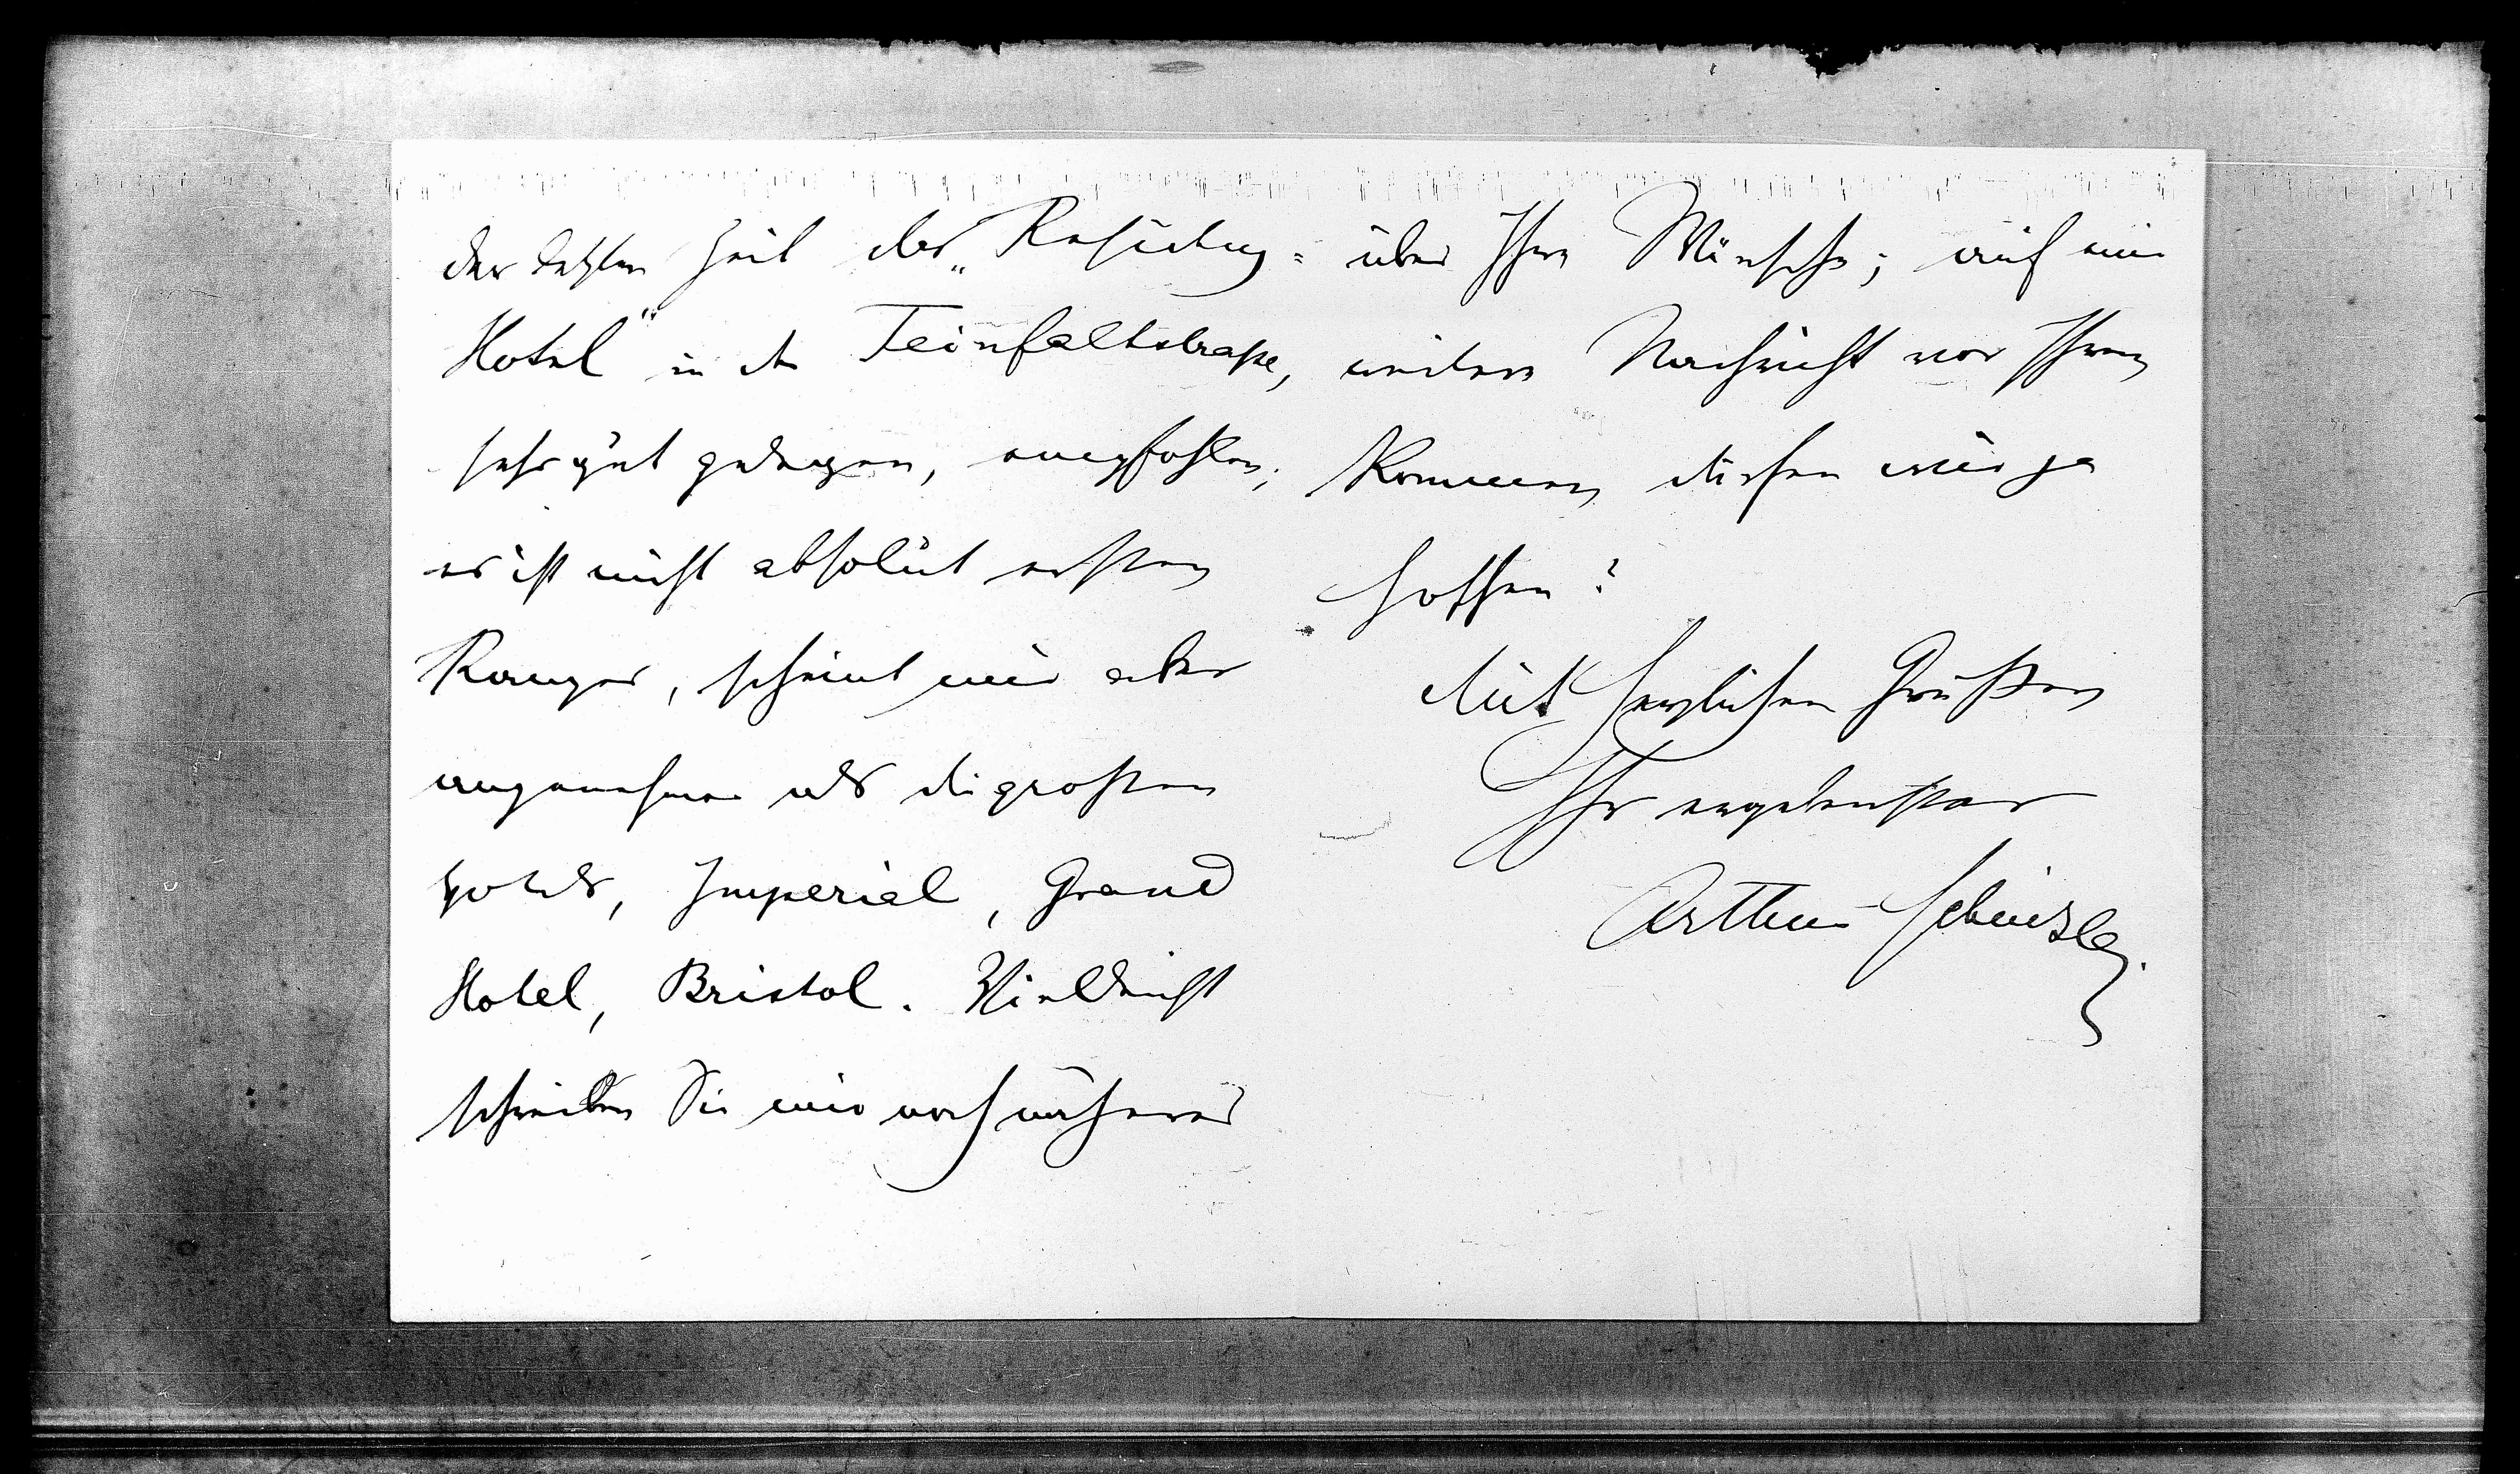 der letzten Zeit das „Residenz-
Hotel" in der Teinfaltstraße,
sehr gut gelegen, empfohlen;
es ist nicht absolut ersten
Ranges, scheint mir aber
angenehmer als die großen
Hotels, Imperial, Grand
Hotel, Bristol. Vielleicht
schreiben Sie mir noch näheres
über Ihre Wünsche; auf eine
weitere Nachricht vor Ihrem
Kommen dürfen wir ja
hoffen?
Mit herzlichen Grüßen
Ihr ergebenster
Arthur Schnitzler